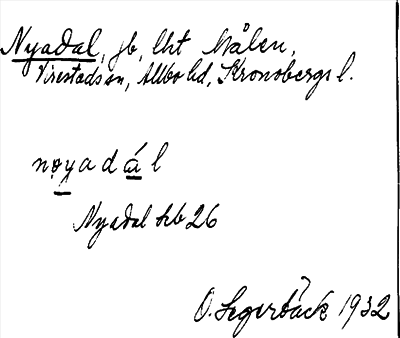 Nyadal, gb, lht Målen,
Virestads sn, Allbo hd, Kronobergs l.
nǫyadál
Nyadal trb 26
O. Segerbäck 1932